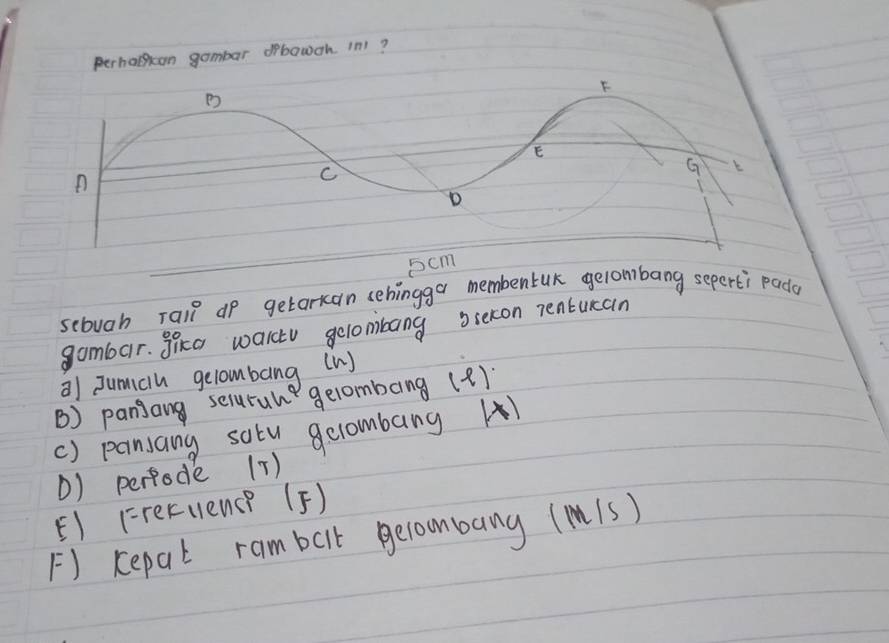 Perhatikan gambar dibawah ini ?
B
F
A
C
D
E
G
t
5cm
sebuah Tali di getarkan sehingga membentuk gelombang seperti pada
gambar. Jika waktu gelombang sekon Tentukan
a) Jumlah gelombang (n)
B) panjang seluruh gelombang (l).
C) panjang satu gelombang (λ)
D) periode (T)
E) Frekuensi (F)
F) Cepat rambat gelombang (m/s)